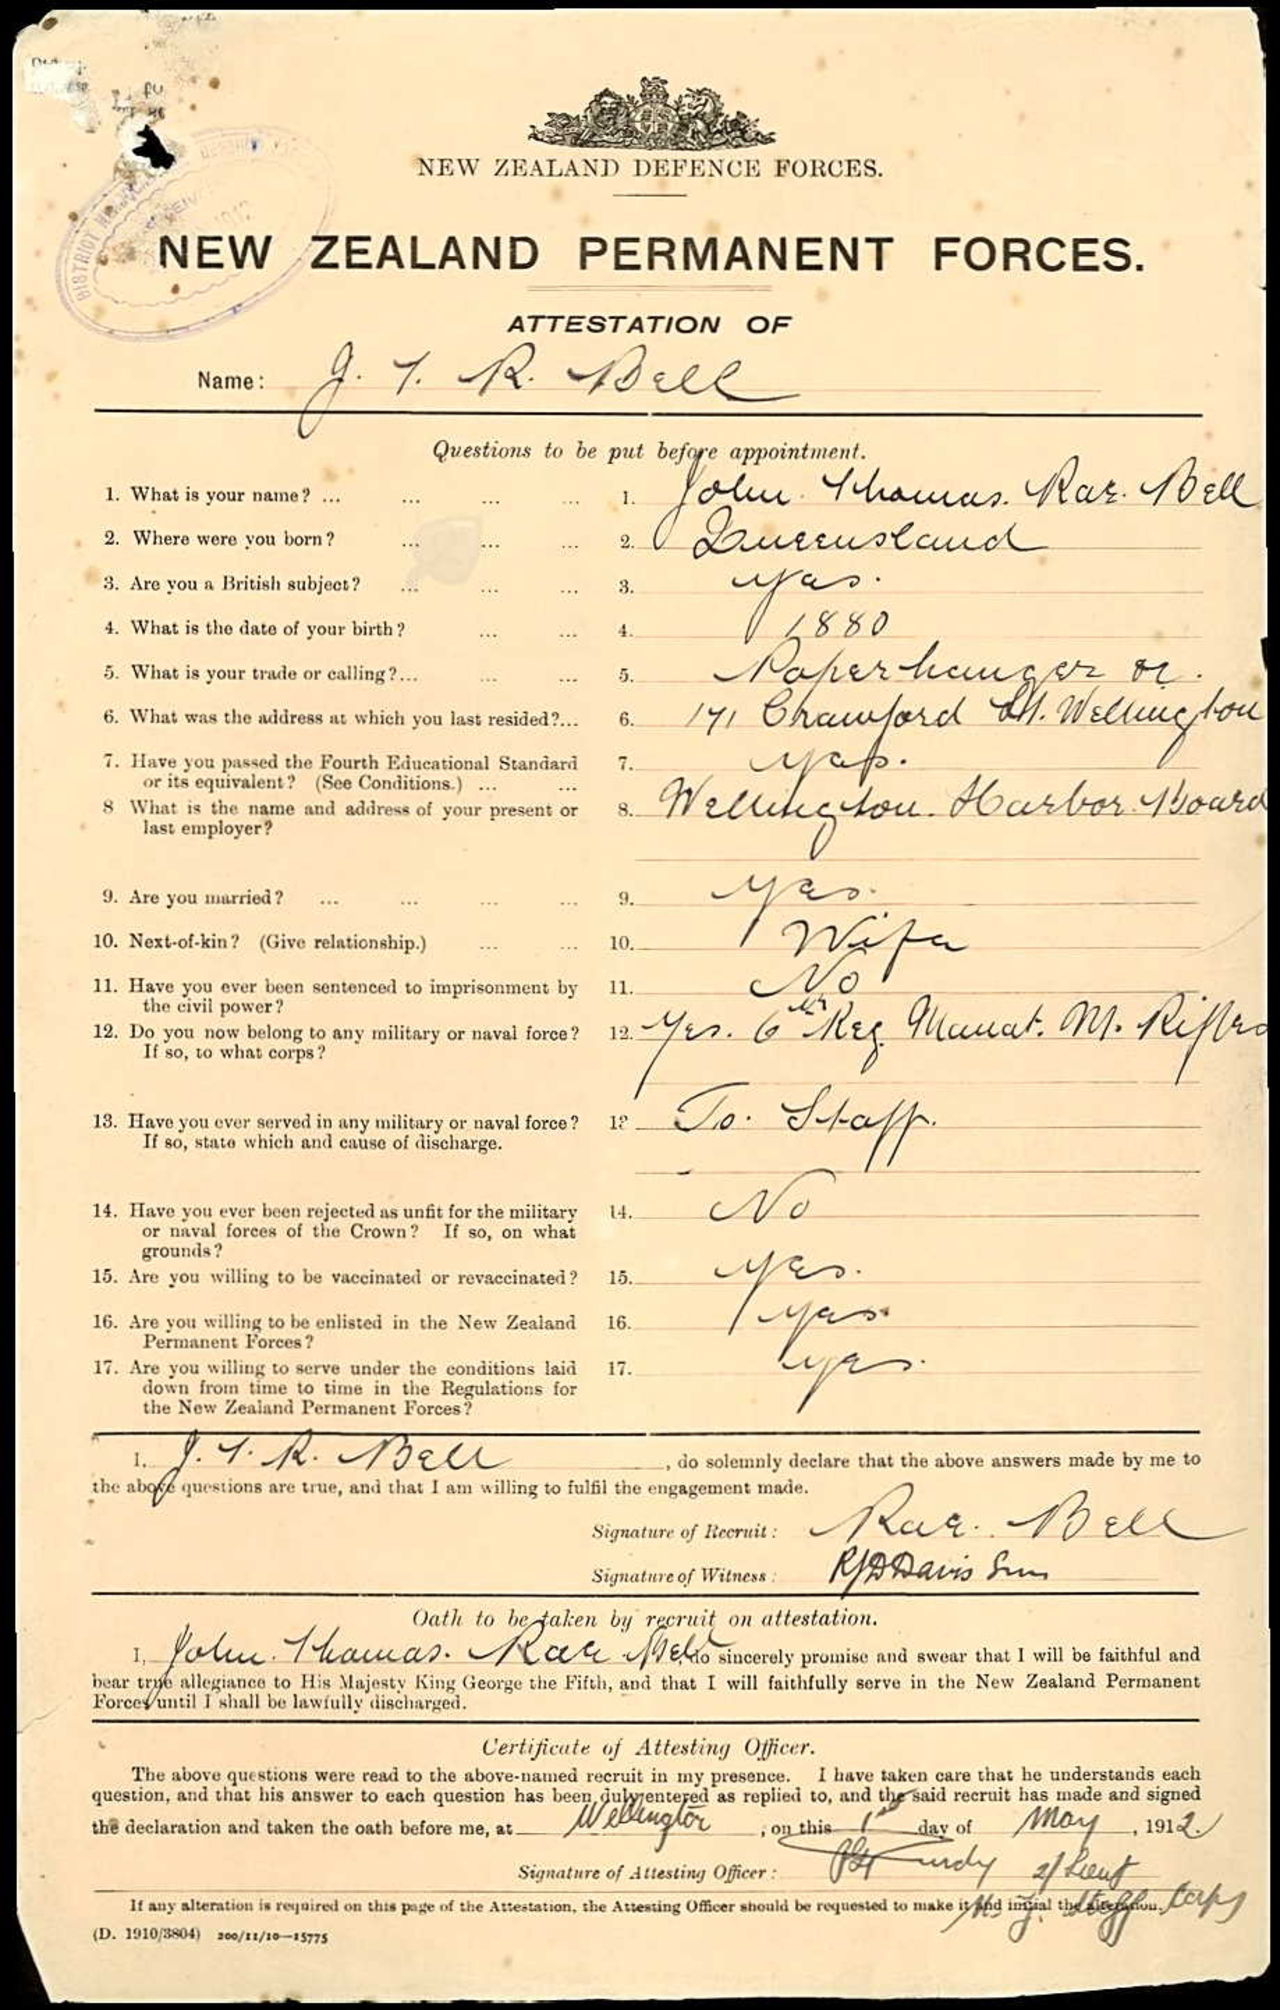 NEW ZEALAND DEFENCE FORCES.
NEW ZEALAND PERMANENT FORCES.
ATTESTATION OF
Name: J. T. R. Bell
Questions to be put before appointment.
1. What is your name? ... ... ... ... 1. John Thomas. Rae. Bell
2. Where were you born? ... ... ... 2. Queensland
3. Are you a British subject? ... ... ... 3. Yes.
4. What is the date of your birth? ... ... 4. 1880
5. What is your trade or calling?... ... ... 5. Paperhanger
6. What was the address at which you last resided?... 6. 171 Crawford St. Wellington
7. Have you passed the Fourth Educational Standard 7. Yes.
or its equivalent? (See Conditions.) ... ...
8 What is the name and address of your present or 8. Wellington. Harbor. Board
last employer?
9. Are you married? ... ... ... ... 9. Yes.
10. Next-of-kin? (Give relationship.) ... ... 10. Wife
11. Have you ever been sentenced to imprisonment by 11. No
the civil power?
12. Do you now belong to any military or naval force? 12. Yes. 6th Reg. Manat. M. Rifles
If so, to what corps?
13. Have you ever served in any military or naval force? 13 To. Staff.
If so, state which and cause of discharge.
14. Have you ever been rejected as unfit for the military 14. No
or naval forces of the Crown? If so, on what
grounds?
15. Are you willing to be vaccinated or revaccinated? 15. Yes.
16. Are you willing to be enlisted in the New Zealand 16. Yes
Permanent Forces?
17. Are you willing to serve under the conditions laid 17. Yes.
down from time to time in the Regulations for
the New Zealand Permanent Forces?
I, J. T. R. Bell, do solemnly declare that the above answers made by me to
the above questions are true, and that I am willing to fulfil the engagement made.
Signature of Recruit: Rae. Bell
Signature of Witness: Davis
Oath to be taken by recruit on attestation.
I, John. Thomas. Rae Bell, do sincerely promise and swear that I will be faithful and
bear true allegiance to His Majesty King George the Fifth, and that I will faithfully serve in the New Zealand Permanent
Forces until I shall be lawfully discharged.
Certificate of Attesting Officer.
The above questions were read to the above-named recruit in my presence. I have taken care that he understands each
question, and that his answer to each question has been duly entered as replied to, and the said recruit has made and signed
the declaration and taken the oath before me, at Wellington, on this 1st day of May, 1912.
Signature of Attesting Officer: 2/Lieut
If any alteration is required on this page of the Attestation, the Attesting Officer should be requested to make it and initial the alteration.
N. Z. Staff Corps
(D. 1910/3804) 200/11/10—15775